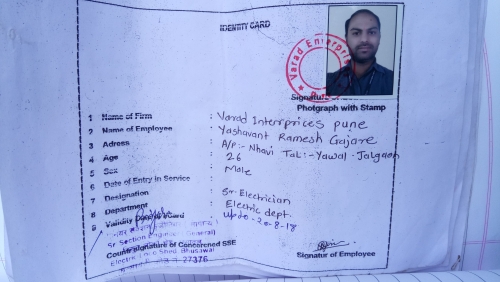 IDENTITY CARD
Varad Enterprises
Signature
Photgraph with Stamp
1 Name of Firm : Varad Interprices pune
2 Name of Employee : Yashavant Ramesh Gajare
3 Adress : A/p:- Nhavi Tal:- Yawal - Jalgaon
4 Age : 26
5 Sex : Male
6 Date of Entry in Service :
7 Designation : Sr Electrician
8 Department : Electric dept.
9 Validity Date of Card : Upto- 20-8-18
Sr Section Engineer (General)
Counter Signature of Concerened SSE
Electric Loco Shed Bhusawal
27376
Signatur of Employee